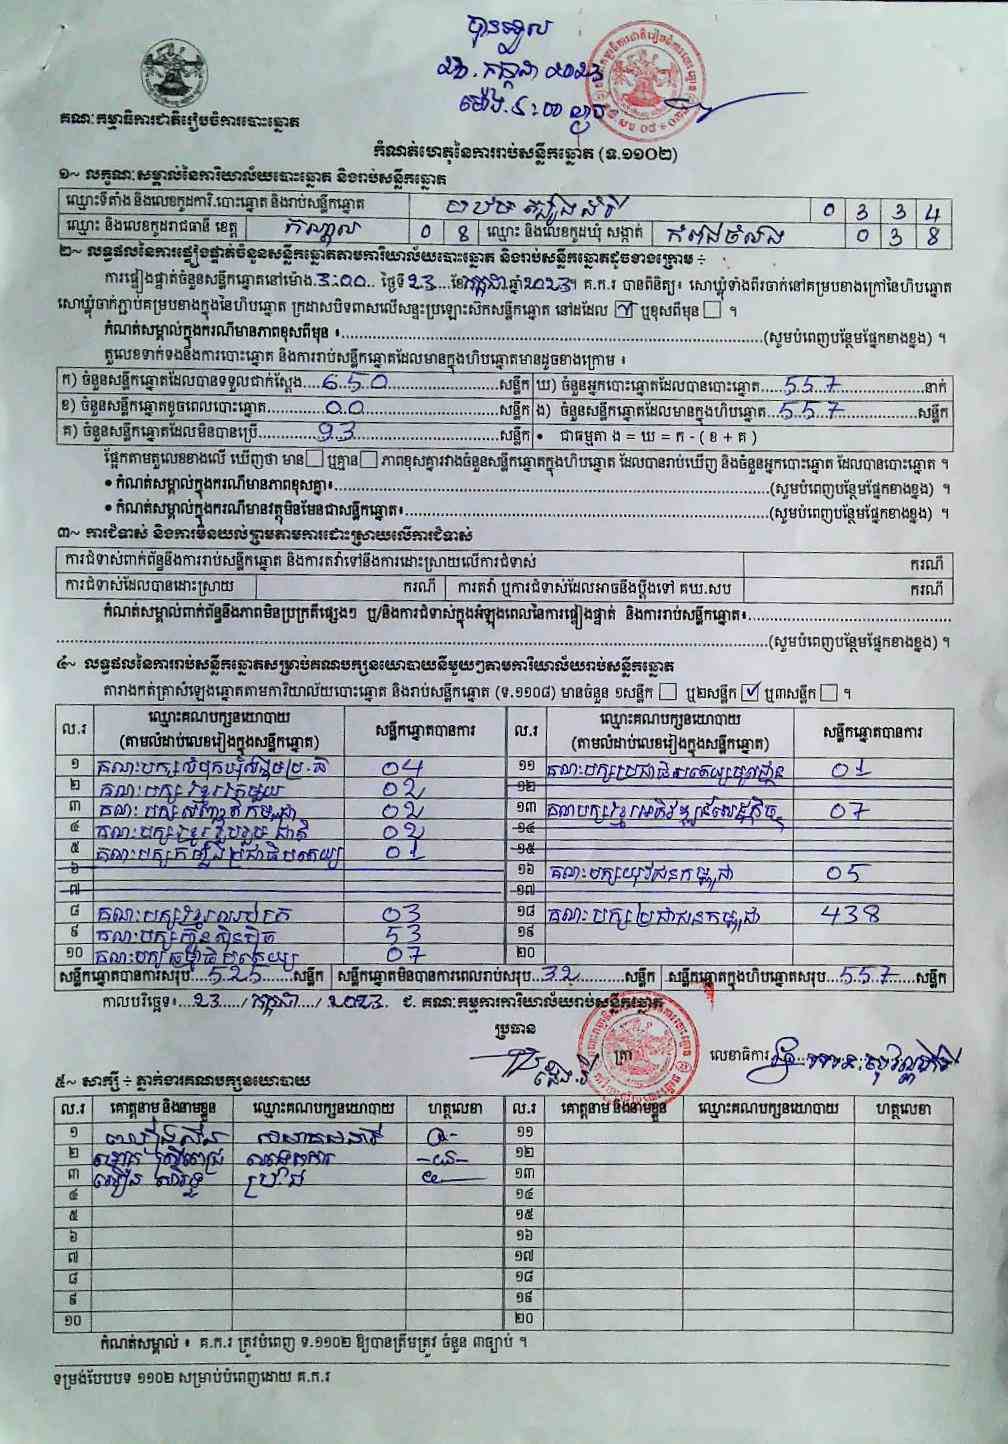 បានទទួល
២៦. កក្កដា ២០២៣
គណៈកម្មាធិការជាតិរៀបចំការបោះឆ្នោត
កំណត់ហេតុនៃការរាប់សន្លឹកឆ្នោត (ទ.១១០២)
១~ លក្ខណៈសម្គាល់នៃការិយាល័យបោះឆ្នោត និងរាប់សន្លឹកឆ្នោត
ឈ្មោះទីតាំង និងលេខកូដការិ.បោះឆ្នោត និងរាប់សន្លឹកឆ្នោត 0 3 3 4
ឈ្មោះ និងលេខកូដរាជធានី ខេត្ត កណ្តាល 0 8 ឈ្មោះ និងលេខកូដឃុំ សង្កាត់ កំពង់ចំលង 0 3 8
២~ លទ្ធផលនៃការផ្ទៀងផ្ទាត់ចំនួនសន្លឹកឆ្នោតតាមការិយាល័យបោះឆ្នោត និងរាប់សន្លឹកឆ្នោតដូចខាងក្រោម ÷
ការផ្ទៀងផ្ទាត់ចំនួនសន្លឹកឆ្នោតនៅម៉ោង 3:00 ថ្ងៃទី 23 ខែ កក្កដា ឆ្នាំ 2023។ គ.ក.រ បានពិនិត្យ៖ សោឃ្លុំទាំងពីរចាក់នៅគម្របខាងក្រៅនៃហិបឆ្នោត
សោឃ្លុំចាក់ភ្ជាប់គម្របខាងក្នុងនៃហិបឆ្នោត ក្រដាសបិទពាសលើសន្ទះប្រឡោះស៊កសន្លឹកឆ្នោត នៅដដែល ☑ ឬខុសពីមុន ☐ ។
កំណត់សម្គាល់ក្នុងករណីមានភាពខុសពីមុន ៖ (សូមបំពេញបន្ថែមផ្នែកខាងខ្នង) ។
តួលេខទាក់ទងនឹងការបោះឆ្នោត និងការរាប់សន្លឹកឆ្នោតដែលមានក្នុងហិបឆ្នោតមានដូចខាងក្រោម ៖
ក) ចំនួនសន្លឹកឆ្នោតដែលបានទទួលជាក់ស្តែង 650 សន្លឹក ឃ) ចំនួនអ្នកបោះឆ្នោតដែលបានបោះឆ្នោត 557 នាក់
ខ) ចំនួនសន្លឹកឆ្នោតខូចពេលបោះឆ្នោត 00 សន្លឹក ង) ចំនួនសន្លឹកឆ្នោតដែលមានក្នុងហិបឆ្នោត 557 សន្លឹក
គ) ចំនួនសន្លឹកឆ្នោតដែលមិនបានប្រើ 93 សន្លឹក • ជាធម្មតា ង = ឃ = ក - ( ខ + គ )
ផ្អែកតាមតួលេខខាងលើ ឃើញថា មាន ☐ ឬគ្មាន ☐ ភាពខុសគ្នារវាងចំនួនសន្លឹកឆ្នោតក្នុងហិបឆ្នោត ដែលបានរាប់ឃើញ និងចំនួនអ្នកបោះឆ្នោត ដែលបានបោះឆ្នោត ។
• កំណត់សម្គាល់ក្នុងករណីមានភាពខុសគ្នា៖ (សូមបំពេញបន្ថែមផ្នែកខាងខ្នង) ។
• កំណត់សម្គាល់ក្នុងករណីមានវត្ថុមិនមែនជាសន្លឹកឆ្នោត៖ (សូមបំពេញបន្ថែមផ្នែកខាងខ្នង) ។
៣~ ការជំទាស់ និងការមិនយល់ព្រមតាមការដោះស្រាយលើការជំទាស់
ការជំទាស់ពាក់ព័ន្ធនឹងការរាប់សន្លឹកឆ្នោត និងការតវ៉ាទៅនឹងការដោះស្រាយលើការជំទាស់ ករណី
ការជំទាស់ដែលបានដោះស្រាយ ករណី ការតវ៉ា ឬការជំទាស់ដែលអាចនឹងប្តឹងទៅ គឃ.សប ករណី
កំណត់សម្គាល់ពាក់ព័ន្ធនឹងភាពមិនប្រក្រតីផ្សេងៗ ឬ/និងការជំទាស់ក្នុងអំឡុងពេលនៃការផ្ទៀងផ្ទាត់ និងការរាប់សន្លឹកឆ្នោត៖
(សូមបំពេញបន្ថែមផ្នែកខាងខ្នង) ។
៤~ លទ្ធផលនៃការរាប់សន្លឹកឆ្នោតសម្រាប់គណបក្សនយោបាយនីមួយៗតាមការិយាល័យរាប់សន្លឹកឆ្នោត
តារាងកត់ត្រាសំឡេងឆ្នោតតាមការិយាល័យបោះឆ្នោត និងរាប់សន្លឹកឆ្នោត (ទ.១១០៨) មានចំនួន ១សន្លឹក ☐ ឬ២សន្លឹក ☑ ឬ៣សន្លឹក ☐ ។
ល.រ ឈ្មោះគណបក្សនយោបាយ (តាមលំដាប់លេខរៀងក្នុងសន្លឹកឆ្នោត) សន្លឹកឆ្នោតបានការ ល.រ ឈ្មោះគណបក្សនយោបាយ (តាមលំដាប់លេខរៀងក្នុងសន្លឹកឆ្នោត) សន្លឹកឆ្នោតបានការ
១ 04 ១១ គណៈបក្សប្រជាធិបតេយ្យមូលដ្ឋាន 01
២ គណៈបក្សខ្មែរតែមួយ 02 ១២
៣ គណៈបក្សសញ្ជាតិកម្ពុជា 02 ១៣ គណបក្សខ្មែរអភិវឌ្ឍន៍សេដ្ឋកិច្ច 07
៤ គណៈបក្សខ្មែររួបរួមជាតិ 02 ១៤
៥ គណៈបក្សកម្លាំងប្រជាធិបតេយ្យ 01 ១៥
៦ ១៦ គណៈបក្សយុវជនកម្ពុជា 05
៧ ១៧
៨ គណៈបក្សខ្មែរ 03 ១៨ គណៈបក្សប្រជាជនកម្ពុជា 438
៩ គណៈបក្សហ៊្វុនស៊ិនប៉ិច 53 ១៩
១០ គណៈបក្សធម្មាធិបតេយ្យ 07 ២០
សន្លឹកឆ្នោតបានការសរុប 525 សន្លឹក សន្លឹកឆ្នោតមិនបានការពេលរាប់សរុប 32 សន្លឹក សន្លឹកឆ្នោតក្នុងហិបឆ្នោតសរុប 557 សន្លឹក
កាលបរិច្ឆេទ៖ 23 / កក្កដា / 2023 ជ. គណៈកម្មការការិយាល័យរាប់សន្លឹកឆ្នោត
ប្រធាន
ត្រា លេខាធិការ
៥~ សាក្សី ÷ ភ្នាក់ងារគណបក្សនយោបាយ
ល.រ គោត្តនាម និងនាមខ្លួន ឈ្មោះគណបក្សនយោបាយ ហត្ថលេខា ល.រ គោត្តនាម និងនាមខ្លួន ឈ្មោះគណបក្សនយោបាយ ហត្ថលេខា
១ ១១
២ ១២
៣ ១៣
៤ ១៤
៥ ១៥
៦ ១៦
៧ ១៧
៨ ១៨
៩ ១៩
១០ ២០
កំណត់សម្គាល់ ៖ គ.ក.រ ត្រូវបំពេញ ទ.១១០២ ឱ្យបានត្រឹមត្រូវ ចំនួន ៣ច្បាប់ ។
ទម្រង់បែបបទ ១១០២ សម្រាប់បំពេញដោយ គ.ក.រ